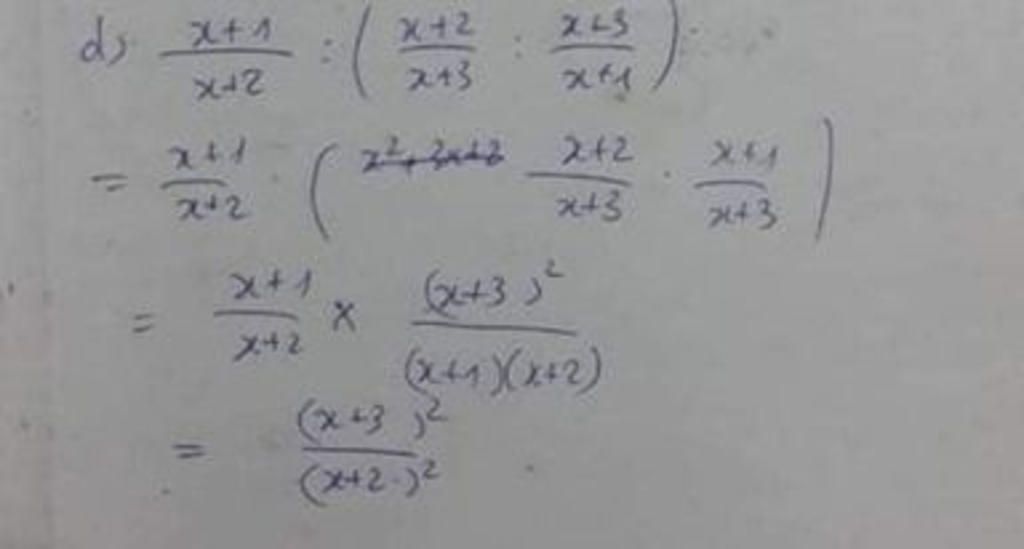 d) \frac{x+1}{x+2} : ( \frac{x+2}{x+3} : \frac{x+3}{x+1} )
= \frac{x+1}{x+2} . ( \frac{x+2}{x+3} . \frac{x+1}{x+3} )
= \frac{x+1}{x+2} × \frac{(x+3)^2}{(x+1)(x+2)}
= \frac{(x+3)^2}{(x+2)^2}